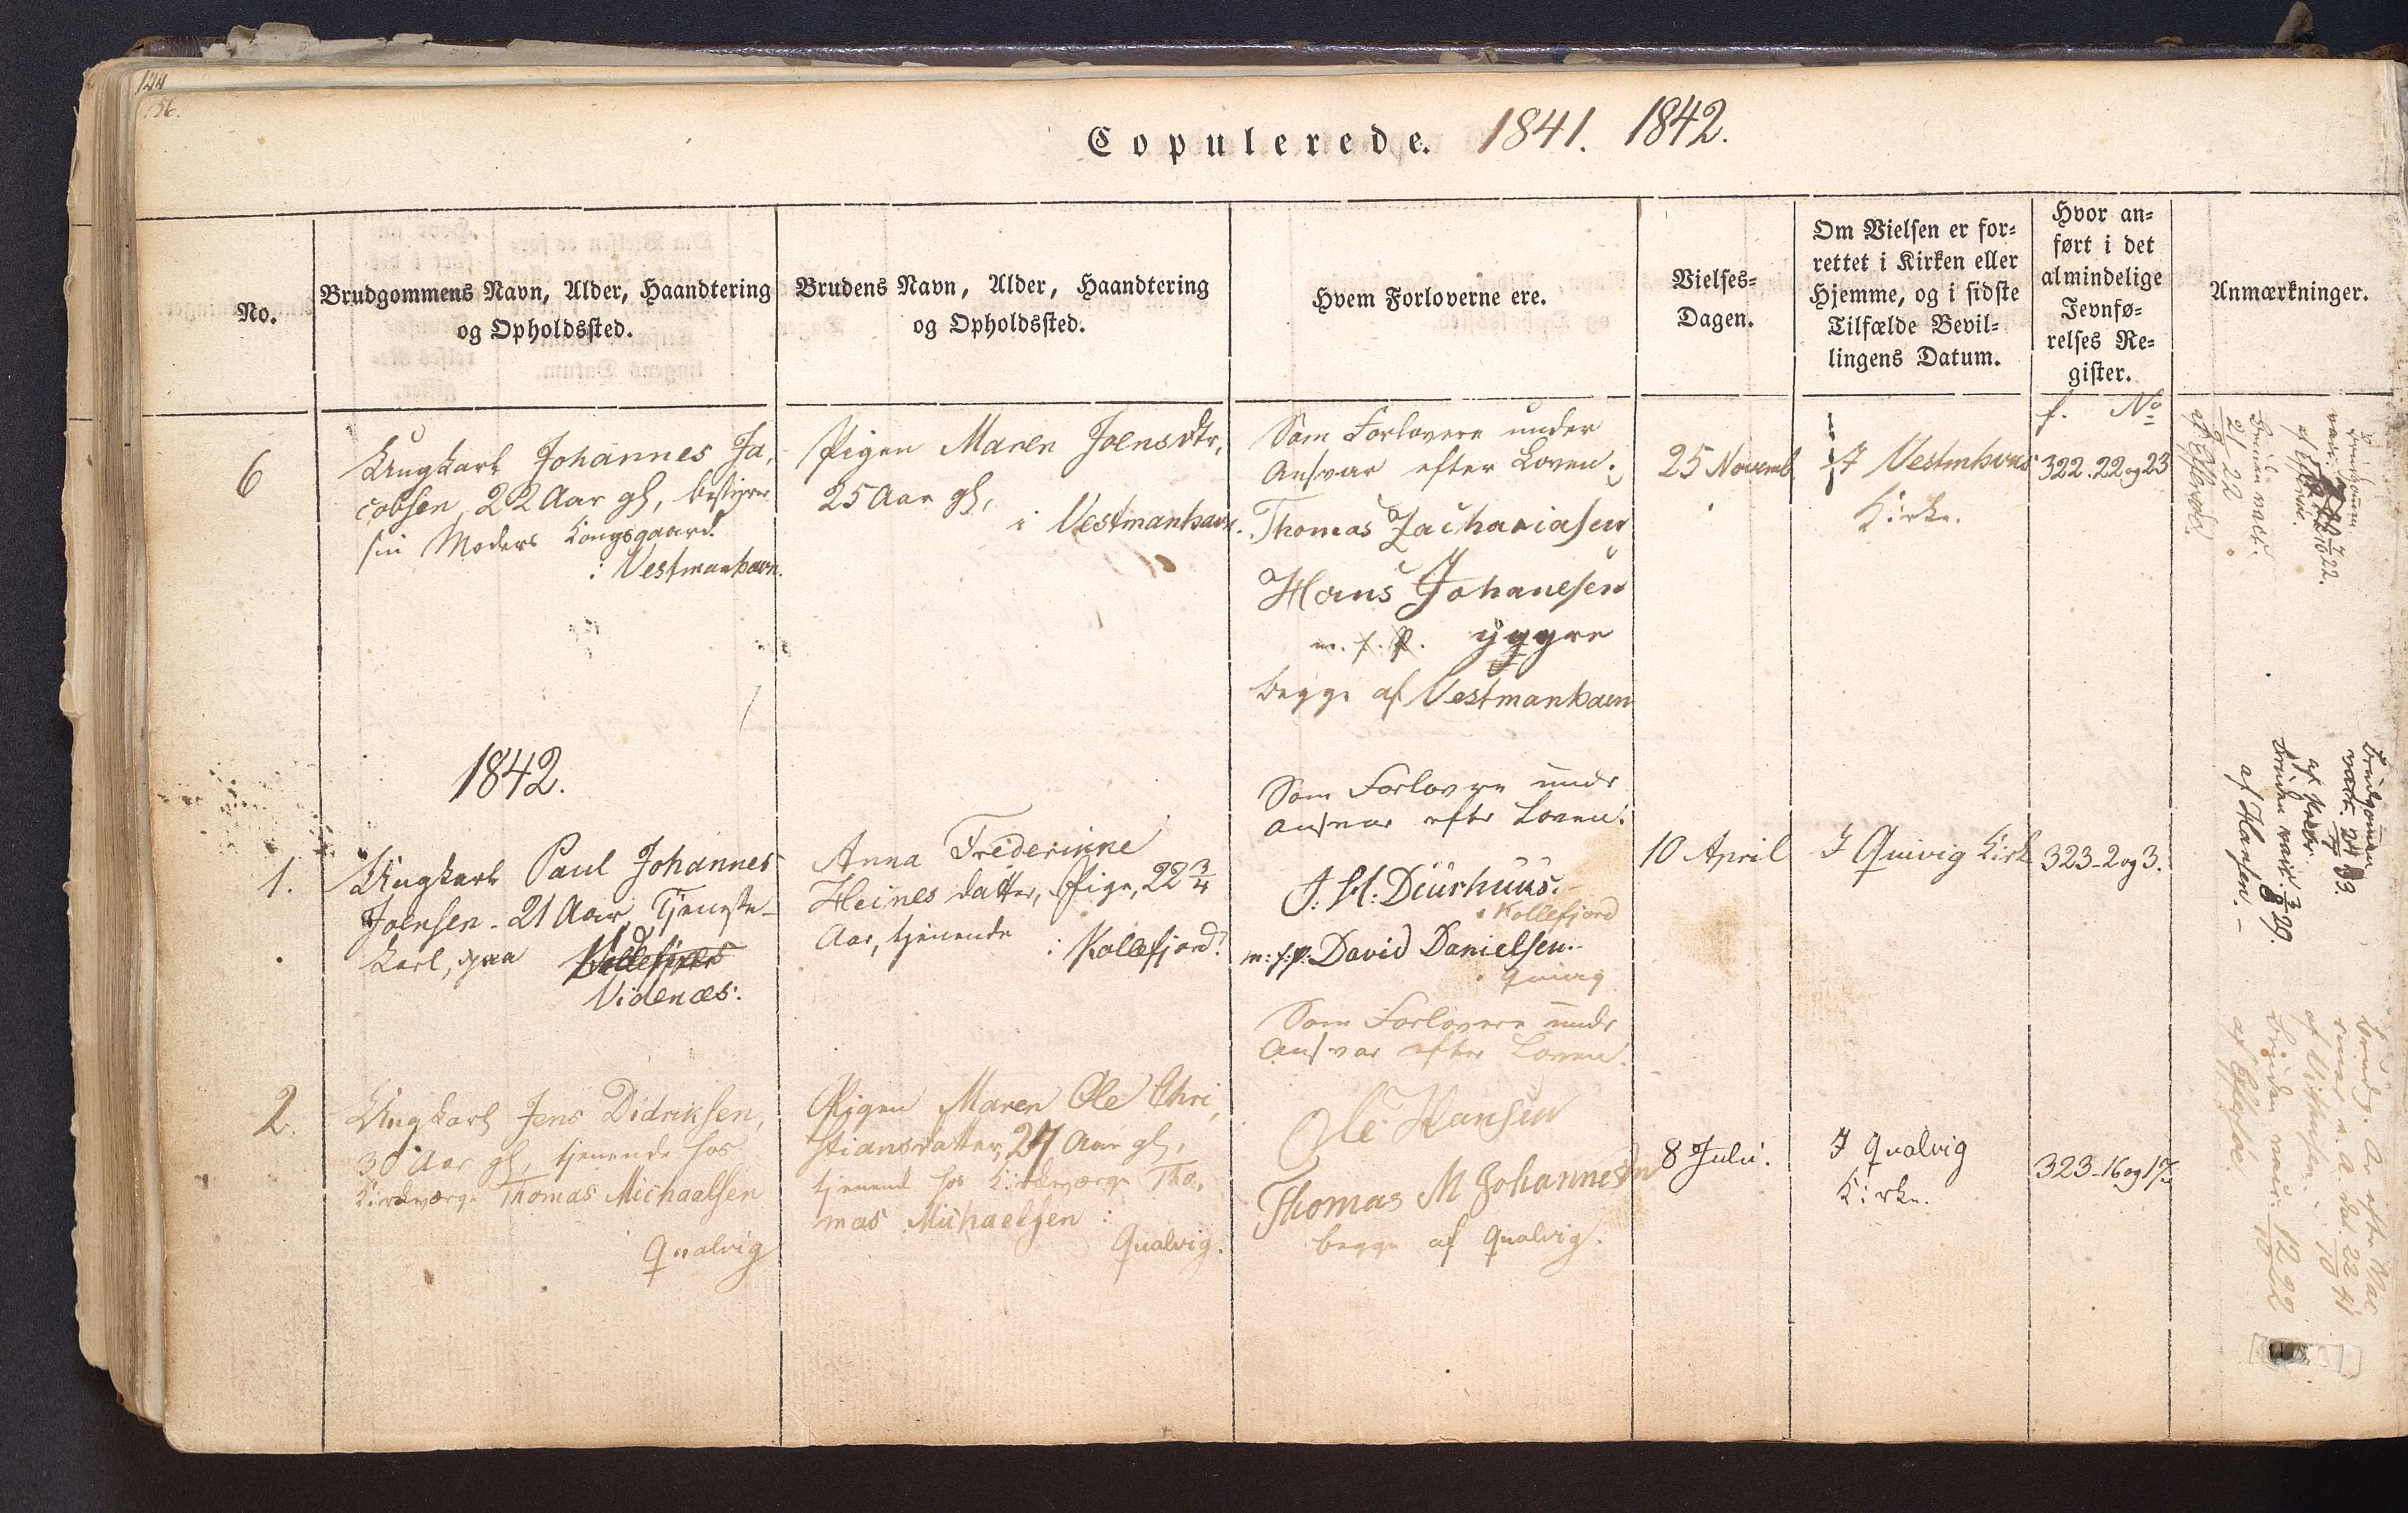 144
156.
Copulerede. 1841. 1842.
No.
Brudgommens Navn, Alder, Haandtering
og Opholdssted.
Brudens Navn, Alder, Haandtering
og Opholdssted.
Hvem Forloverne ere.
Vielses-
Dagen.
Om Vielsen er for-
rettet i Kirken eller
Hjemme, og i sidste
Tilfælde Bevil-
lingens Datum.
Hvor an-
ført i det
almindelige
Jevnfø-
relses Re-
gister.
Anmærkninger.
f. No
6
Ungkarl Johannes Ja-
cobsen, 22 Aar gl, bestyrer
sin Moders Kongsgaard
i Vestmanhavn.
Pigen Maren Joensdtr,
25 Aar gl,
i Vestmanhavn.
Som Forlovere under
Ansvar efter Loven:
Thomas Zachariasen
Hans Johanesen
m. f. P. yngre
begge af Vestmanhavn
25 Novemb.
I Vestmhvns
Kirke.
322. 22 og 23
Brudgomm
vacc.
22.
Bruden vacc.
21 22
1842.
1.
Ungkarl Paul Johannes
Joensen - 21 Aar, Tjeneste-
karl, paa
Videnæs.
Anna Frederinne
Heines datter, Pige, 22 3/4
Aar, tjenende
i Kollefjord.
Som Forlovere under
Ansvar efter Loven:
J: H: Diurhuus.
i Kollefjord
m: f: p: David Danielsen.
i Quivig
10 April
I Quivig Kirk
323 - 2 og 3.
Brudgommen
vacc.
Bruden vacc. 29.
af Hansen. -
2.
Ungkarl Jens Didriksen,
30 Aar gl, tjenende hos
Kirkeværge Thomas Michaelsen
i Qualvig
Pigen Maren Ole Chri-
stiansdatter, 27 Aar gl,
tjenende hos Kirkeværge Tho-
mas Michaelsen i
Qualvig.
Som Forlovere under
Ansvar efter Loven:
Ole Hansen
Thomas M Johannesen
begge af Qualvig.
8 Juli.
I Qualvig
Kirke.
323 - 16 og 17
Brudg.
Bruden vacc. 12 22